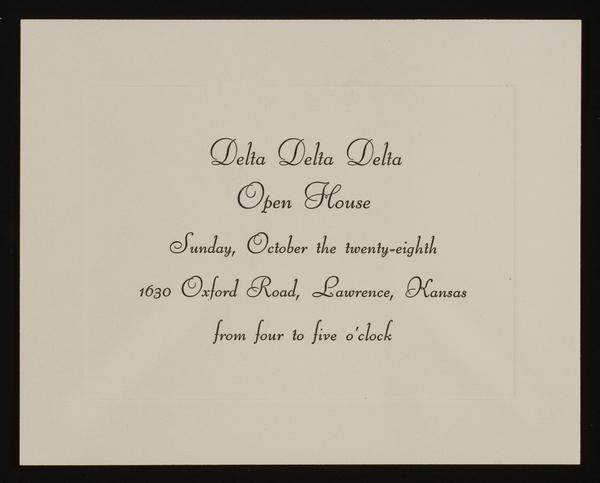 Delta Delta Delta
Open House
Sunday, October the twenty-eighth
1630 Oxford Road, Lawrence, Kansas
from four to five o'clock